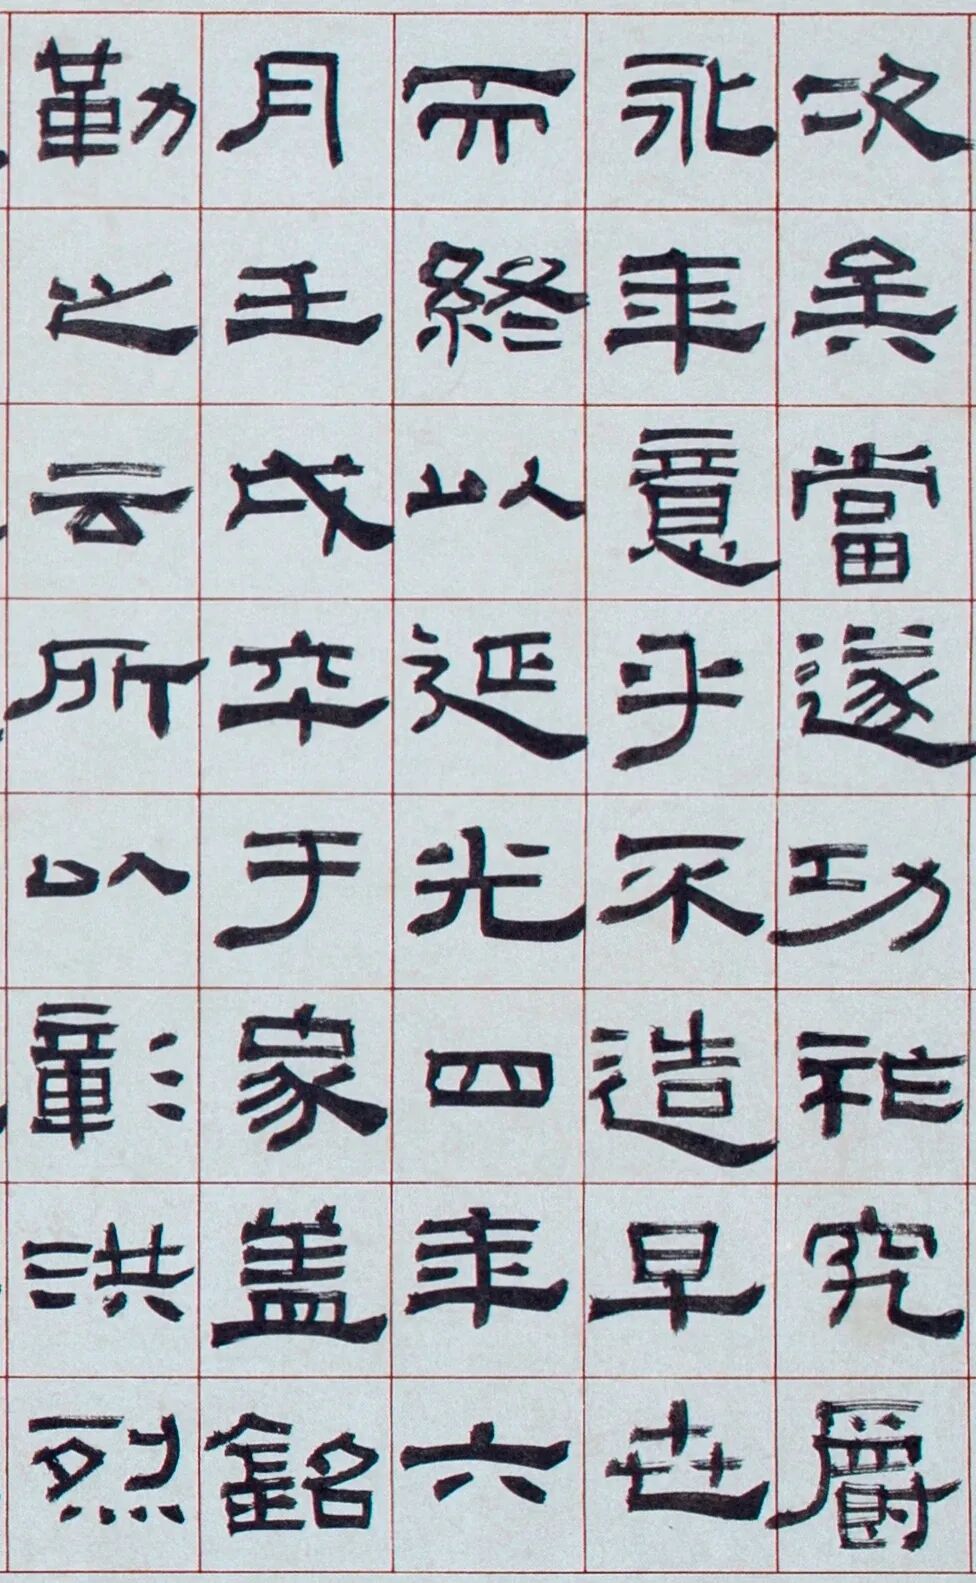 次矣當遂功祉究爵
永年意乎不造早世
而終以延光四年六
月壬戌卒于家盖銘
勒之云所以彰洪烈